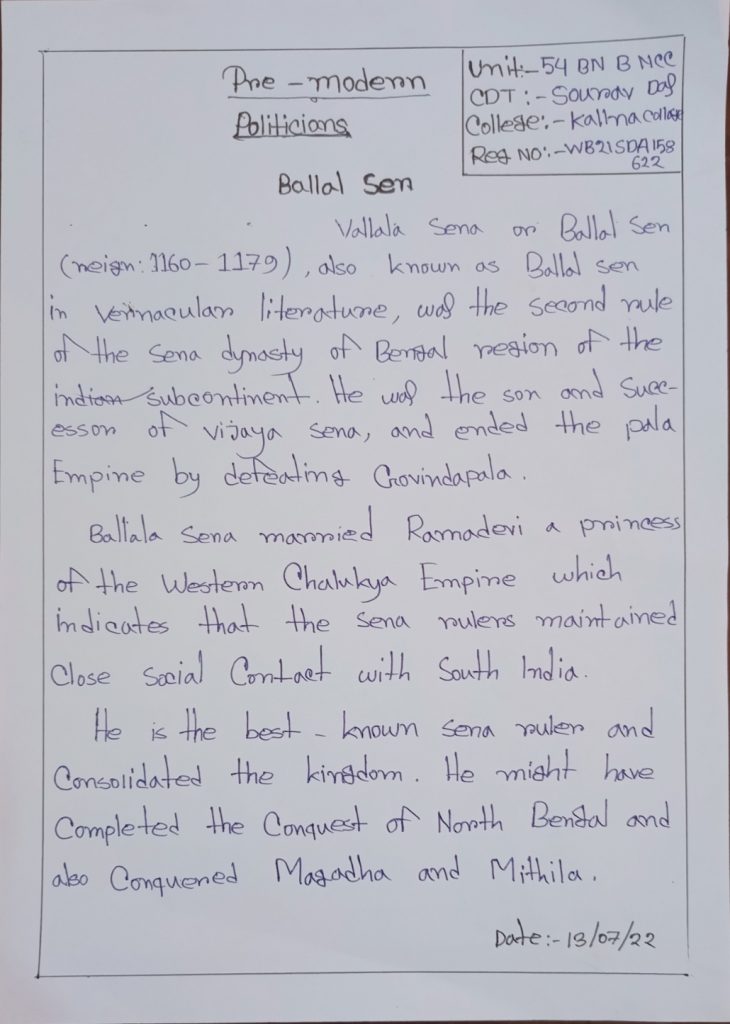 Pre - modern
Politicians
Unit:- 54 BN B NCC
CDT :- Sourav Das
College:- Kalna College
Reg NO:- WB21SDA158
622
Ballal Sen
Vallala Sena or Ballal Sen
(reign: 1160 - 1179), also known as Ballal sen
in vernacular literature, was the second rule
of the Sena dynasty of Bengal region of the
indian subcontinent. He was the son and Succ-
essor of vijaya sena, and ended the pala
Empire by defeating Govindapala.
Ballala Sena married Ramadevi a princess
of the Western Chalukya Empire which
indicates that the sena rulers maintained
Close Social Contact with South India.
He is the best - known sena ruler and
Consolidated the kingdom. He might have
Completed the Conquest of North Bengal and
also Conquered Magadha and Mithila.
Date:- 13/07/22